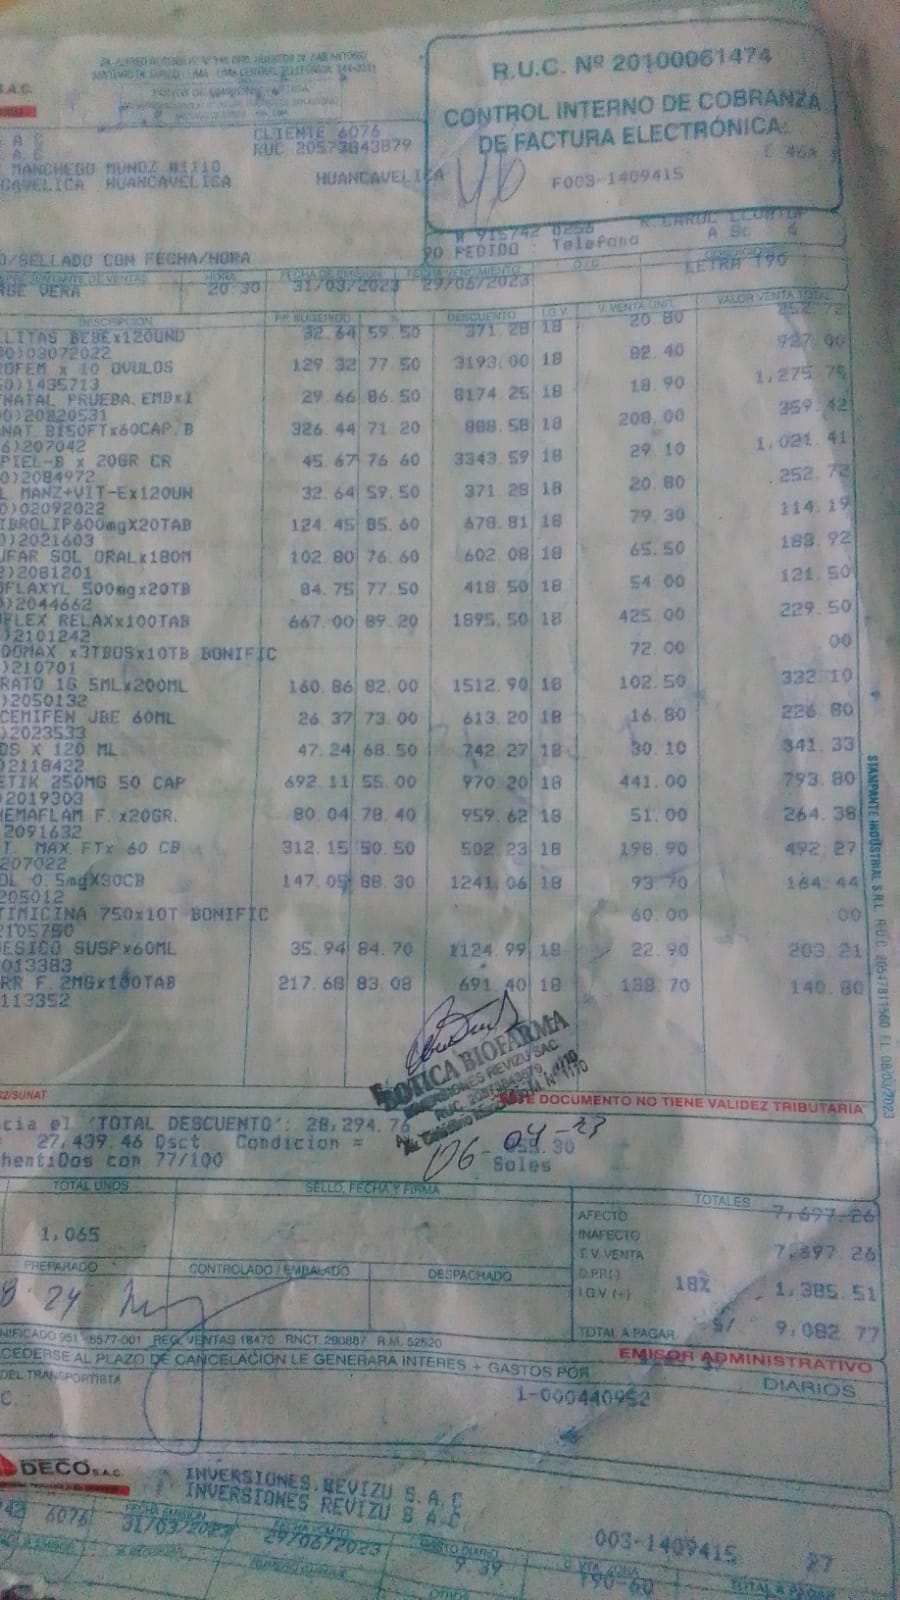 S.A.C.
R.U.C. Nº 20100061474
CONTROL INTERNO DE COBRANZA
DE FACTURA ELECTRÓNICA
F003-1409415
CLIENTE 6076
RUC 20573843879
MANCHEGO MUNOZ #1110
CAVELICA HUANCAVELICA HUANCAVELICA
PEDIDO : Telefono
O/SELLADO CON FECHA/HORA
HORA FECHA DE EMISION FECHA VENCIMIENTO
RBE VERA 20:30 31/03/2023 29/06/2023 LETRA 190
DESCRIPCION P.P. SUGERIDO % DESCUENTO I.G.V. V. VENTA UNIT. VALOR VENTA TOTAL
LLITAS BEBEx120UND 32.64 59.50 371.28 18 20.80 252.72
)03072022
OFEM x 10 OVULOS 129.32 77.50 3193.00 18 82.40 927.00
)1435713
NATAL PRUEBA EMBx1 29.66 86.50 8174.25 18 18.90 1,275.75
)20820531
NAT BISOFTx60CAP.B 326.44 71.20 888.58 18 208.00 359.42
6)207042
PIEL-B x 20GR CR 45.67 76.60 3343.59 18 29.10 1,021.41
)2084972
L MANZ+VIT-Ex120UN 32.64 59.50 371.28 18 20.80 252.72
)02092022
IBROLIP600mgX20TAB 124.45 85.60 678.81 18 79.30 114.19
)2021603
UFAR SOL ORALx180M 102.80 76.60 602.08 18 65.50 183.92
2)2081201
OFLAXYL 500mgx20TB 84.75 77.50 418.50 18 54.00 121.50
)2044662
FLEX RELAXx100TAB 667.00 89.20 1895.50 18 425.00 229.50
)2101242
DOMAX x3TBOSx10TB BONIFIC 72.00 00
)210701
RATO 1G 5MLx200ML 160.86 82.00 1512.90 18 102.50 332.10
)2050132
CEMIFEN JBE 60ML 26.37 73.00 613.20 18 16.80 226.80
)2023533
OS X 120 ML 47.24 68.50 742.27 18 30.10 341.33
)2118422
ETIK 250MG 50 CAP 692.11 55.00 970.20 18 441.00 793.80
)2019303
HEMAFLAM F. x20GR. 80.04 78.40 959.62 18 51.00 264.38
2091632
T. MAX FTx 60 CB 312.15 50.50 502.23 18 198.90 492.27
207022
OL 0.5mgX30CB 147.05 88.30 1241.06 18 93.70 164.44
205012
TIMICINA 750x10T BONIFIC 60.00 00
2105750
DESICO SUSPx60ML 35.94 84.70 1124.99 18 22.90 203.21
013383
RR F. 2MGx100TAB 217.68 83.08 691.40 18 138.70 140.80
113352
STAMPANTE INDUSTRIAL S.R.L. RUC 20547811500 F.I. 08/03/2023
BOTICA BIOFARMA
INVERSIONES REVIZU SAC
RUC. 20573843879
02/SUNAT
ESTE DOCUMENTO NO TIENE VALIDEZ TRIBUTARIA
cia el 'TOTAL DESCUENTO': 28,294.76
27,439.46 Dsct. Condicion =
hentiDos con 77/100 Soles
06-04-23
TOTAL UNDS SELLO, FECHA Y FIRMA TOTALES
1,065
AFECTO 7,697.26
INAFECTO
T.V. VENTA 7,697.26
I.G.V (+) 18% 1,385.51
TOTAL A PAGAR S/ 9,082.77
PREPARADO CONTROLADO / EMBALADO DESPACHADO
8:24
REG. VENTAS 18470 RNCT. 290887 R.M. 52520
EMISOR ADMINISTRATIVO
CEDERSE AL PLAZO DE CANCELACION LE GENERARA INTERES + GASTOS POR DIARIOS
DEL TRANSPORTISTA
1-000440952
DECO S.A.C.
INVERSIONES REVIZU S.A.C
INVERSIONES REVIZU S.A.C
6076 31/03/2023 29/06/2023 9.39 003-1409415
190-60